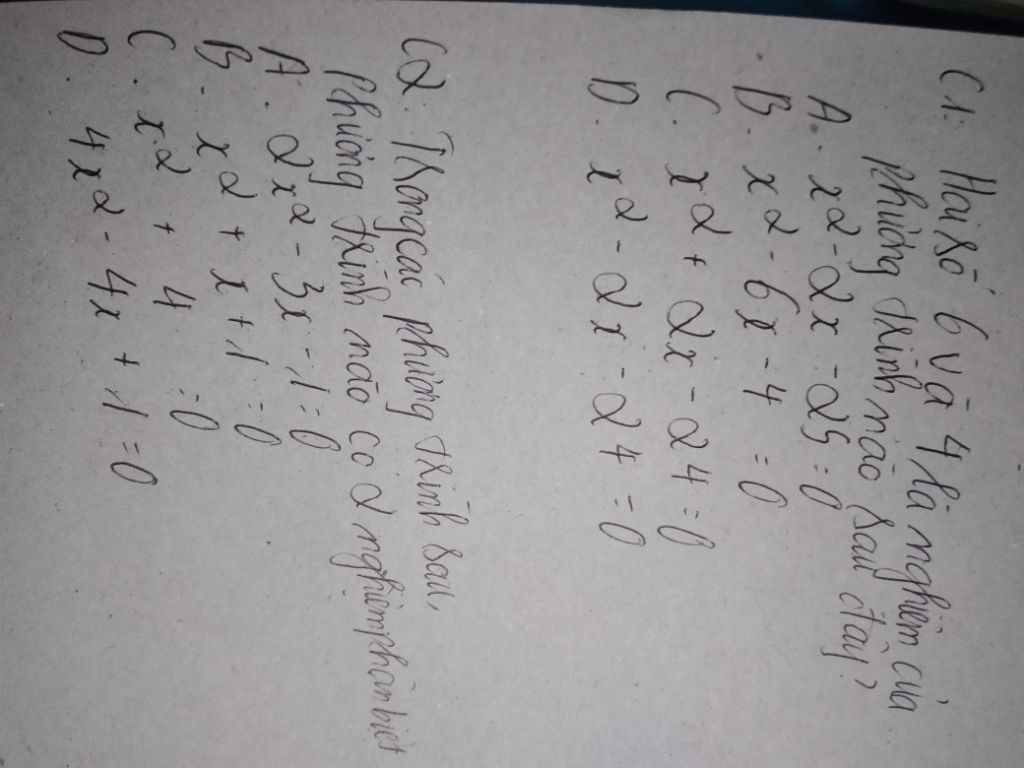 C1: Hai số 6 và 4 là nghiệm của
phương trình nào sau đây?
A. x2 - 2x - 25 = 0
B. x2 - 6x - 4 = 0
C. x2 + 2x - 24 = 0
D. x2 - 2x - 24 = 0
C2: Trong các phương trình sau,
phương trình nào có 2 nghiệm phân biệt
A. 2x2 - 3x - 1 = 0
B. x2 + x + 1 = 0
C. x2 + 4 = 0
D. 4x2 - 4x + 1 = 0